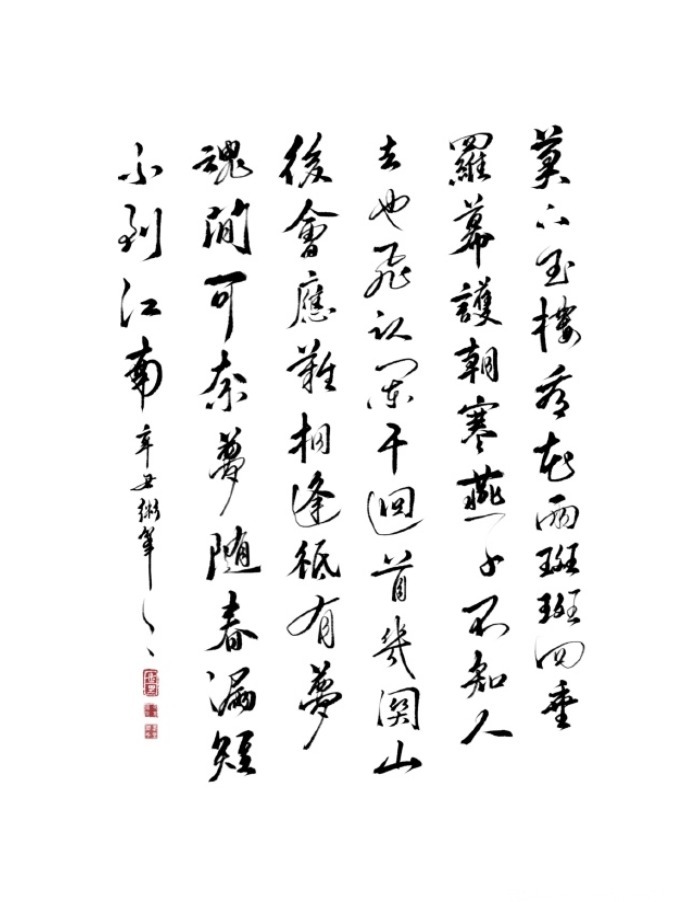 莫上玉樓看花雨斑斑四垂
羅幕護朝寒燕子不知人
去也飛認闌干迴首幾關山
後會應難相逢祇有夢
魂間可奈夢隨春漏短
不到江南 辛丑